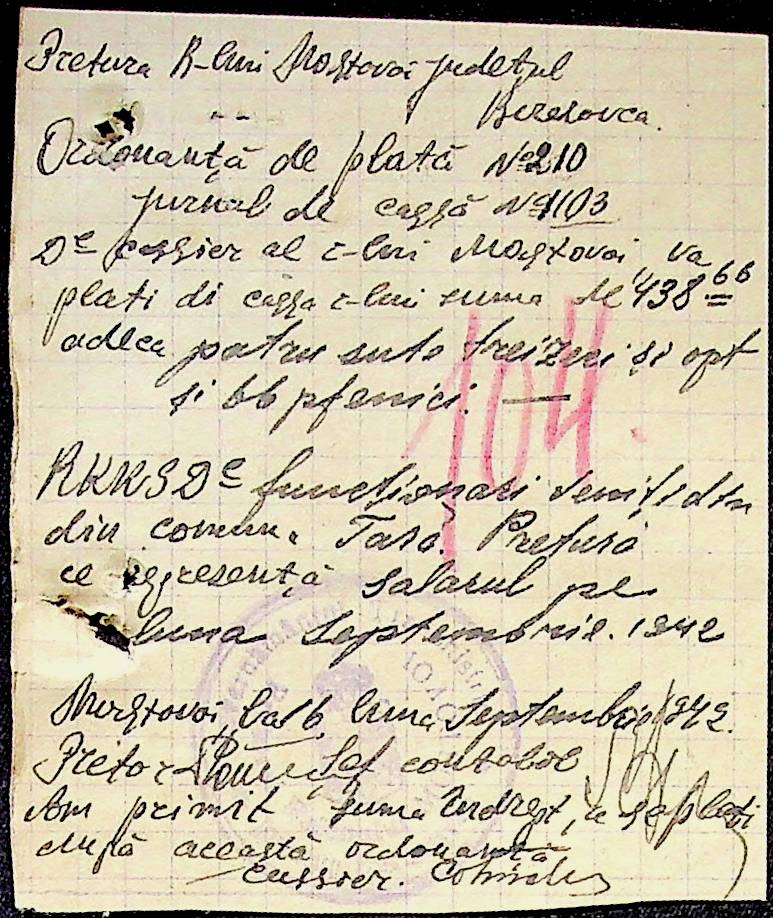 Pretura R-lui Mostovoi judeţul
Berezovca.
Ordonanţă de plată № 210
jurnal de cassă № 1103
De cassier al r-lui Mostovoi va
plati di cassa r-lui suma de 438 66
adeca patru sute treizeci şi opt
şi 66 pfenici. —
104.
funcţionari
din comuna Pretură
ce represenţă salarul pe
luna Septembrie. 1942
Mostovoi, la 16 luna Septembrie 1942.
Pretor Şef contabil
Am primit suma
după această ordonanţă
cassier.